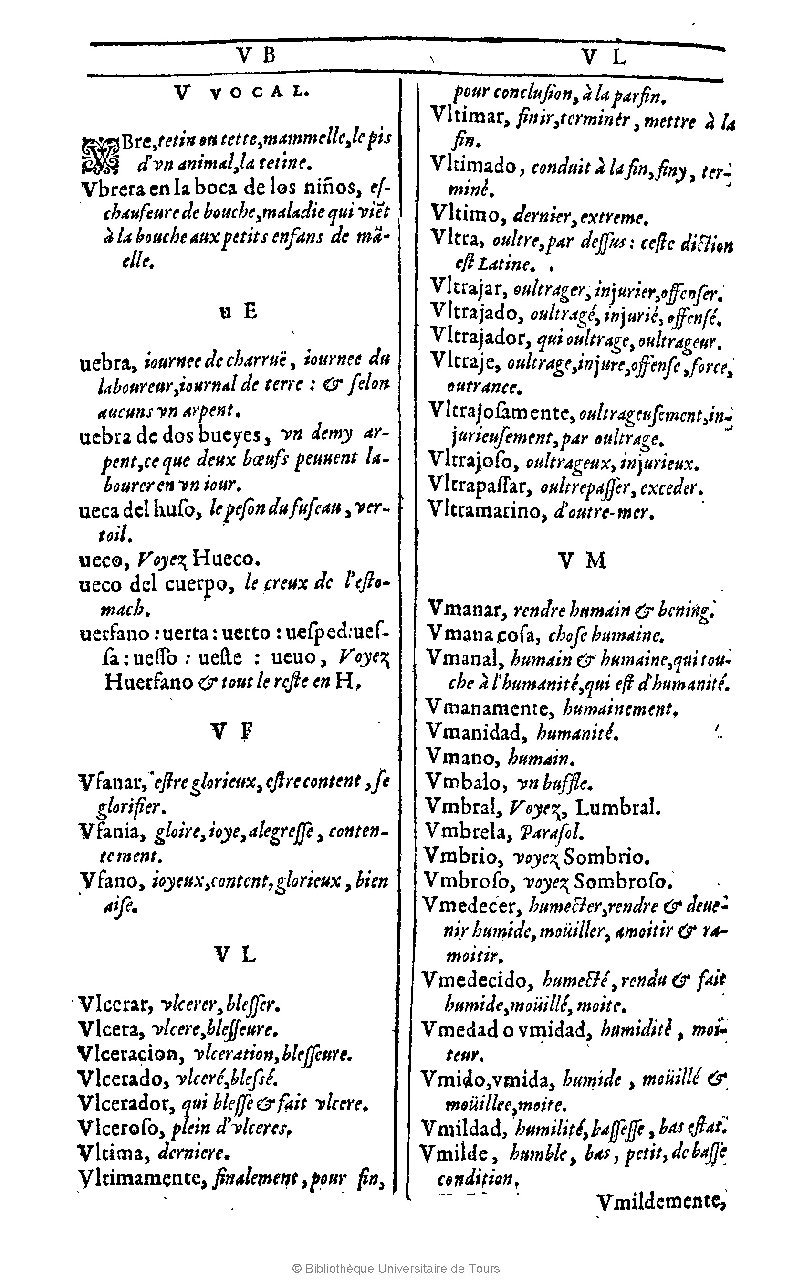 V B
V L
V VOCAL.
VBre, tetin ou tette, mammelle, le pis
d'vn animal, la tetine.
Vbrera en la boca de los niños, es-
chaufeure de bouche, maladie qui viẽt
à la bouche aux petits enfans de mã-
elle.
u E
uebra, iournee de charruë, iournee du
laboureur, iournal de terre : & ſelon
aucuns vn arpent.
uebra de dos bueyes, vn demy ar-
pent, ce que deux bœufs peuuent la-
bourer en vn iour.
ueca del huſo, le peſon du fuſeau, ver-
toil.
ueco, Voyez Hueco.
ueco del cuerpo, le creux de l'eſto-
mach.
uerfano : uerta : uerto : ueſped: ueſ-
ſa : ueſſo : ueſte : ueuo, Voyez
Huerfano & tout le reſte en H.
V F
Vfanar, eſtre glorieux, eſtre content, ſe
glorifier.
Vfania, gloire, ioye, alegreſſe, conten-
tement.
Vfano, ioyeux, content, glorieux, bien
aiſe.
V L
Vlcerar, vlcerer, bleſſer.
Vlcera, vlcere, bleſſeure.
Vlceracion, vlceration, bleſſeure.
Vlcerado, vlceré, bleſſé.
Vlcerador, qui bleſſe & fait vlcere.
Vlceroſo, plein d'vlceres.
Vltima, derniere.
Vltimamente, finalement, pour fin,
pour concluſion, à la parfin.
Vltimar, finir, terminer, mettre à la
fin.
Vltimado, conduit à la fin, finy, ter-
miné.
Vltimo, dernier, extreme.
Vltra, oultre, par deſſus : ceſte diction
eſt Latine.
Vltrajar, oultrager, injurier, offenſer.
Vltrajado, oultragé, injurié, offenſé.
Vltrajador, qui oultrage, oultrageur.
Vltraje, oultrage, injure, offenſe, force,
outrance.
Vltrajoſamente, oultrageuſement, in-
jurieuſement, par oultrage.
Vltrajoſo, oultrageux, injurieux.
Vltrapaſſar, oultrepaſſer, exceder.
Vltramarino, d'outre-mer.
V M
Vmanar, rendre humain & bening.
Vmana coſa, choſe humaine.
Vmanal, humain & humaine, qui tou-
che à l'humanité, qui eſt d'humanité.
Vmanamente, humainement.
Vmanidad, humanité.
Vmano, humain.
Vmbalo, vn buffle.
Vmbral, Voyez, Lumbral.
Vmbrela, Paraſol.
Vmbrio, voyez Sombrio.
Vmbroſo, voyez Sombroſo.
Vmedecer, humecter, rendre & deue-
nir humide, moüiller, amoitir & ra-
moitir.
Vmedecido, humecté, rendu & fait
humide, moüillé, moite.
Vmedad o vmidad, humidité, moi-
teur.
Vmido, vmida, humide, moüillé &
moüillee, moite.
Vmildad, humilité, baſſeſſe, bas eſtat.
Vmilde, humble, bas, petit, de baſſe
condition.
Vmildemente,
© Bibliothèque Universitaire de Tours